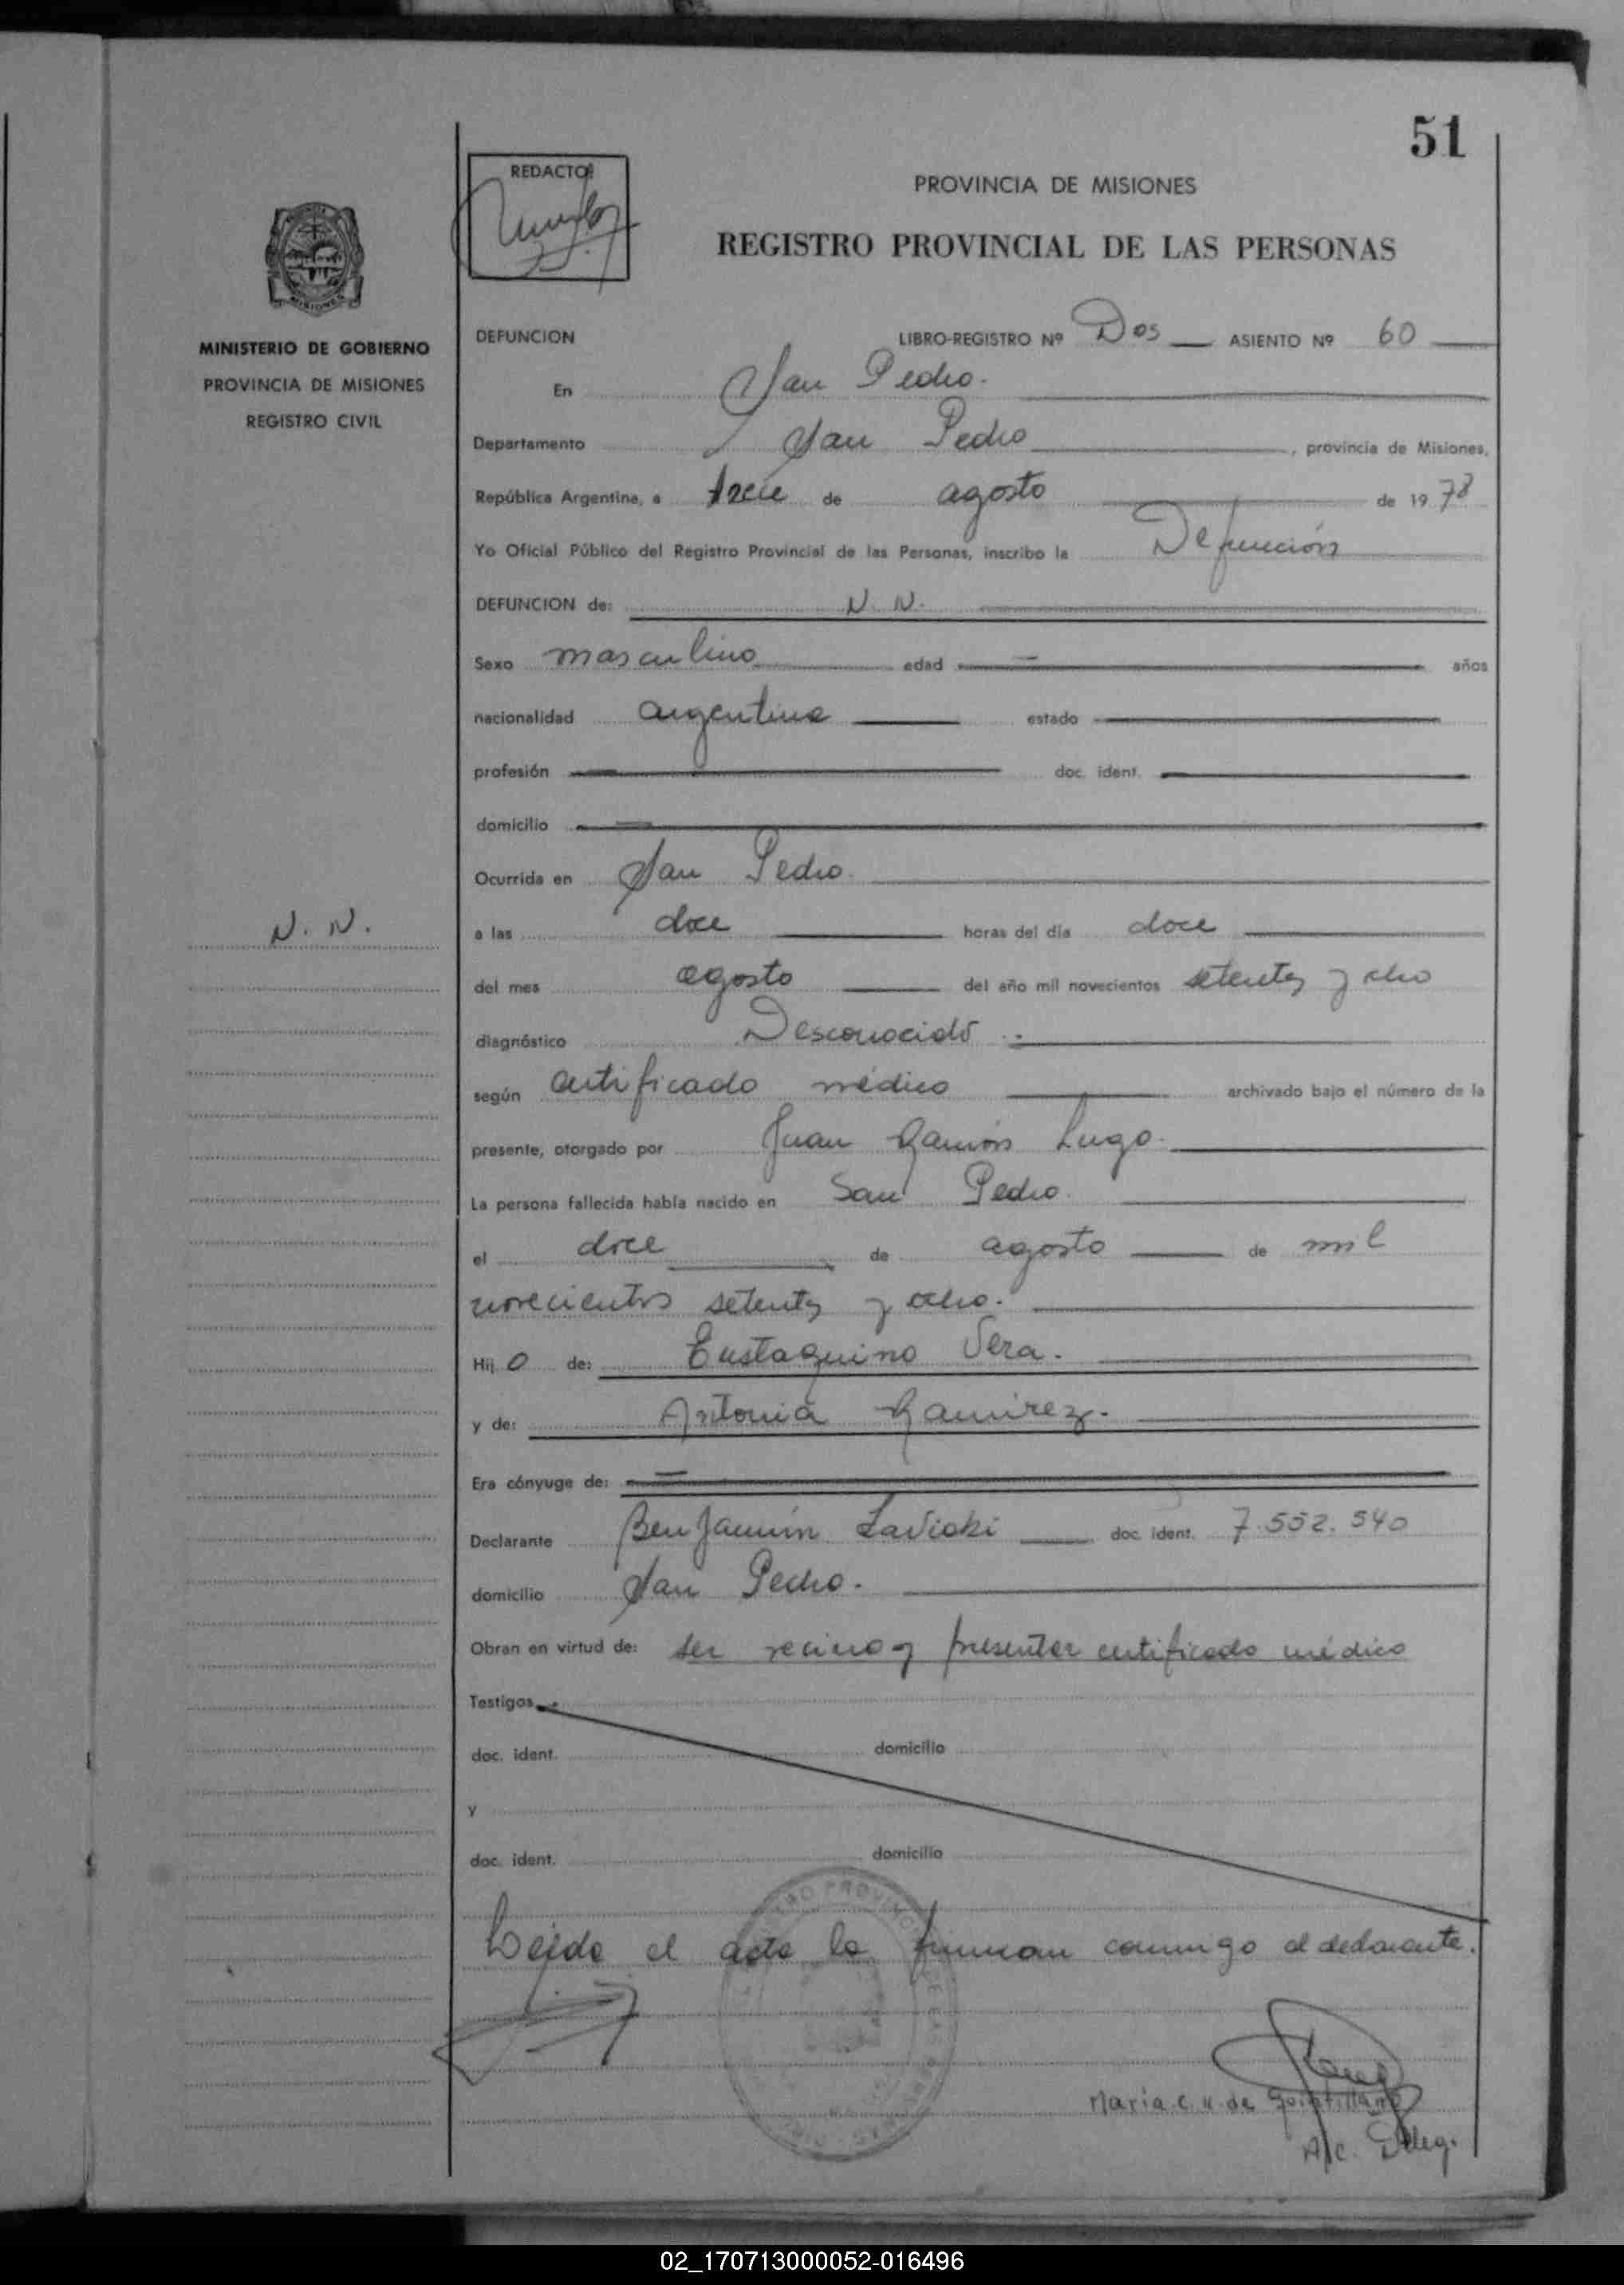 51
REDACTOR
PROVINCIA DE MISIONES
REGISTRO PROVINCIAL DE LAS PERSONAS
MINISTERIO DE GOBIERNO
PROVINCIA DE MISIONES
REGISTRO CIVIL
DEFUNCION LIBRO-REGISTRO Nº Dos ASIENTO Nº 60
En San Pedro.
Departamento San Pedro, provincia de Misiones,
República Argentina, a trece de agosto de 1978
Yo Oficial Público del Registro Provincial de las Personas, inscribo la Defunción
DEFUNCION de: N. N.
Sexo masculino edad años
nacionalidad argentina estado
profesión doc. ident.
domicilio
Ocurrida en San Pedro.
N. N.
a las doce horas del día doce
del mes agosto del año mil novecientos setenta y ocho
diagnóstico Desconocido.
según certificado médico archivado bajo el número de la
presente, otorgado por Juan Ramón Lugo.
La persona fallecida había nacido en San Pedro.
el doce de agosto de mil
novecientos setenta y ocho.
Hijo de: Eustaquino Vera.
y de: Antonia Ramirez.
Era cónyuge de:
Declarante Benjamín Lavicki doc. ident. 7.552.540
domicilio San Pedro.
Obran en virtud de: ser vecino y presentar certificado médico
Testigos
doc. ident. domicilio
y
doc. ident. domicilio
Leída el acta la firman conmigo el declarante.
Maria C. de Quintillana
A/c. Deleg.
02_170713000052-016496